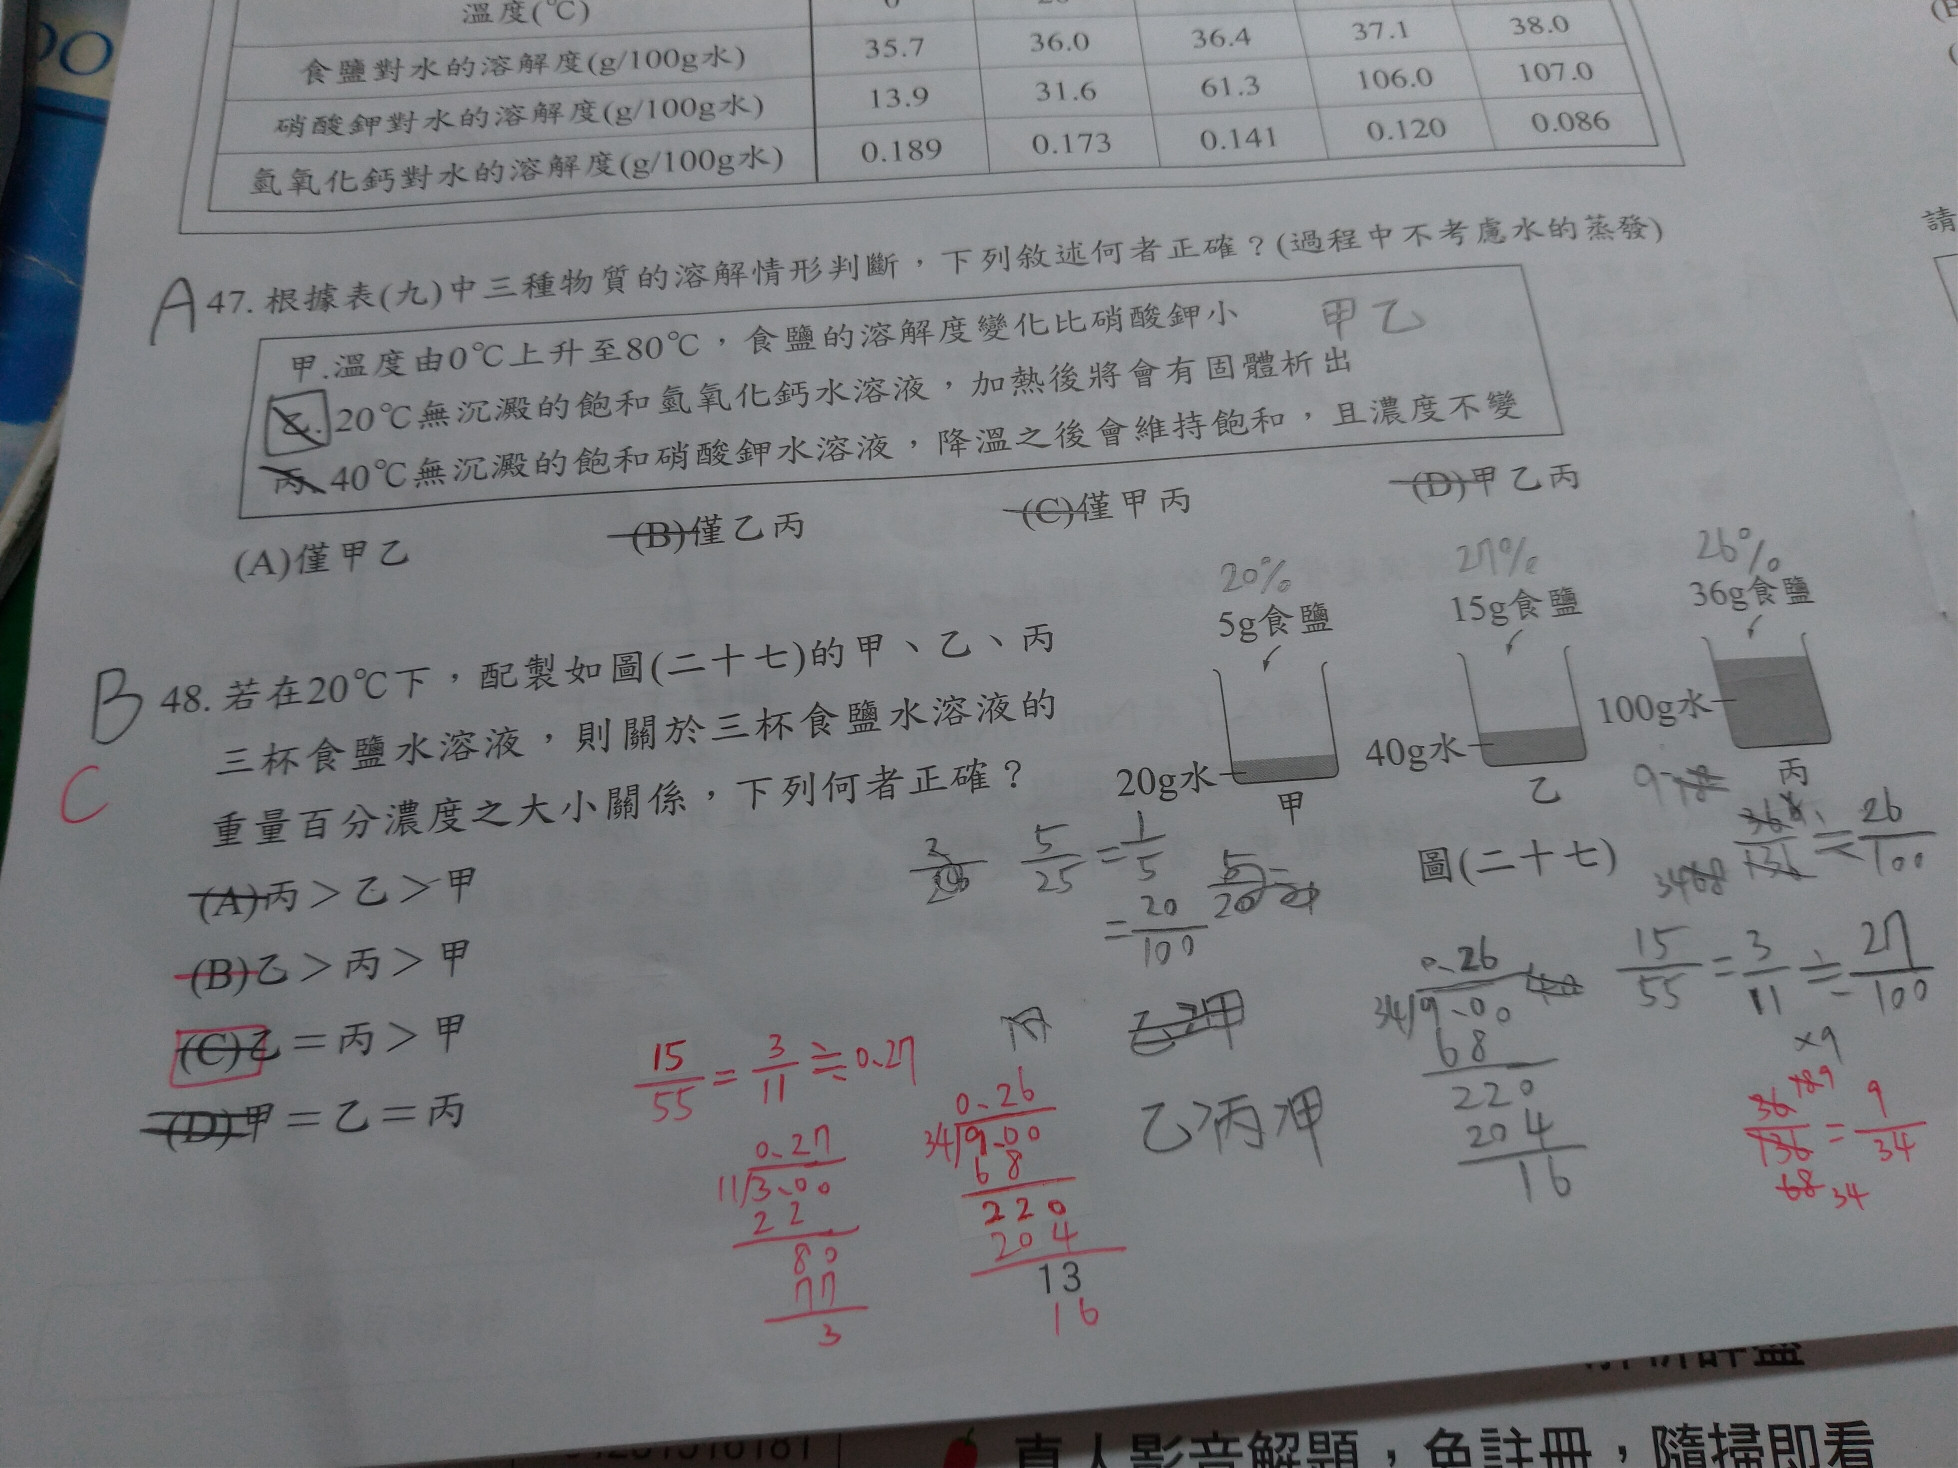 溫度(℃)
食鹽對水的溶解度(g/100g水) 35.7 36.0 36.4 37.1 38.0
硝酸鉀對水的溶解度(g/100g水) 13.9 31.6 61.3 106.0 107.0
氫氧化鈣對水的溶解度(g/100g水) 0.189 0.173 0.141 0.120 0.086
A 47. 根據表(九)中三種物質的溶解情形判斷，下列敘述何者正確？(過程中不考慮水的蒸發)
甲.溫度由0℃上升至80℃，食鹽的溶解度變化比硝酸鉀小 甲乙
乙.20℃無沉澱的飽和氫氧化鈣水溶液，加熱後將會有固體析出
丙.40℃無沉澱的飽和硝酸鉀水溶液，降溫之後會維持飽和，且濃度不變
(A)僅甲乙 (B)僅乙丙 (C)僅甲丙 (D)甲乙丙
B 48. 若在20℃下，配製如圖(二十七)的甲、乙、丙
三杯食鹽水溶液，則關於三杯食鹽水溶液的
C
重量百分濃度之大小關係，下列何者正確？
(A)丙＞乙＞甲
(B)乙＞丙＞甲
(C)乙＝丙＞甲
(D)甲＝乙＝丙
20% 27% 26%
5g食鹽 15g食鹽 36g食鹽
20g水 40g水 100g水
甲 乙 丙
圖(二十七)
5/25 = 1/5
= 20/100
36/136 ≒ 26/100
15/55 = 3/11 ≒ 27/100
0.26
34/9.00
68
220
204
16
乙>丙>甲
15/55 = 3/11 ≒ 0.27
0.27
11/3.00
22
80
77
3
0.26
34/9.00
68
220
204
13
16
×9
36/136 = 9/34
68 34
真人影音解題，免註冊，隨掃即看